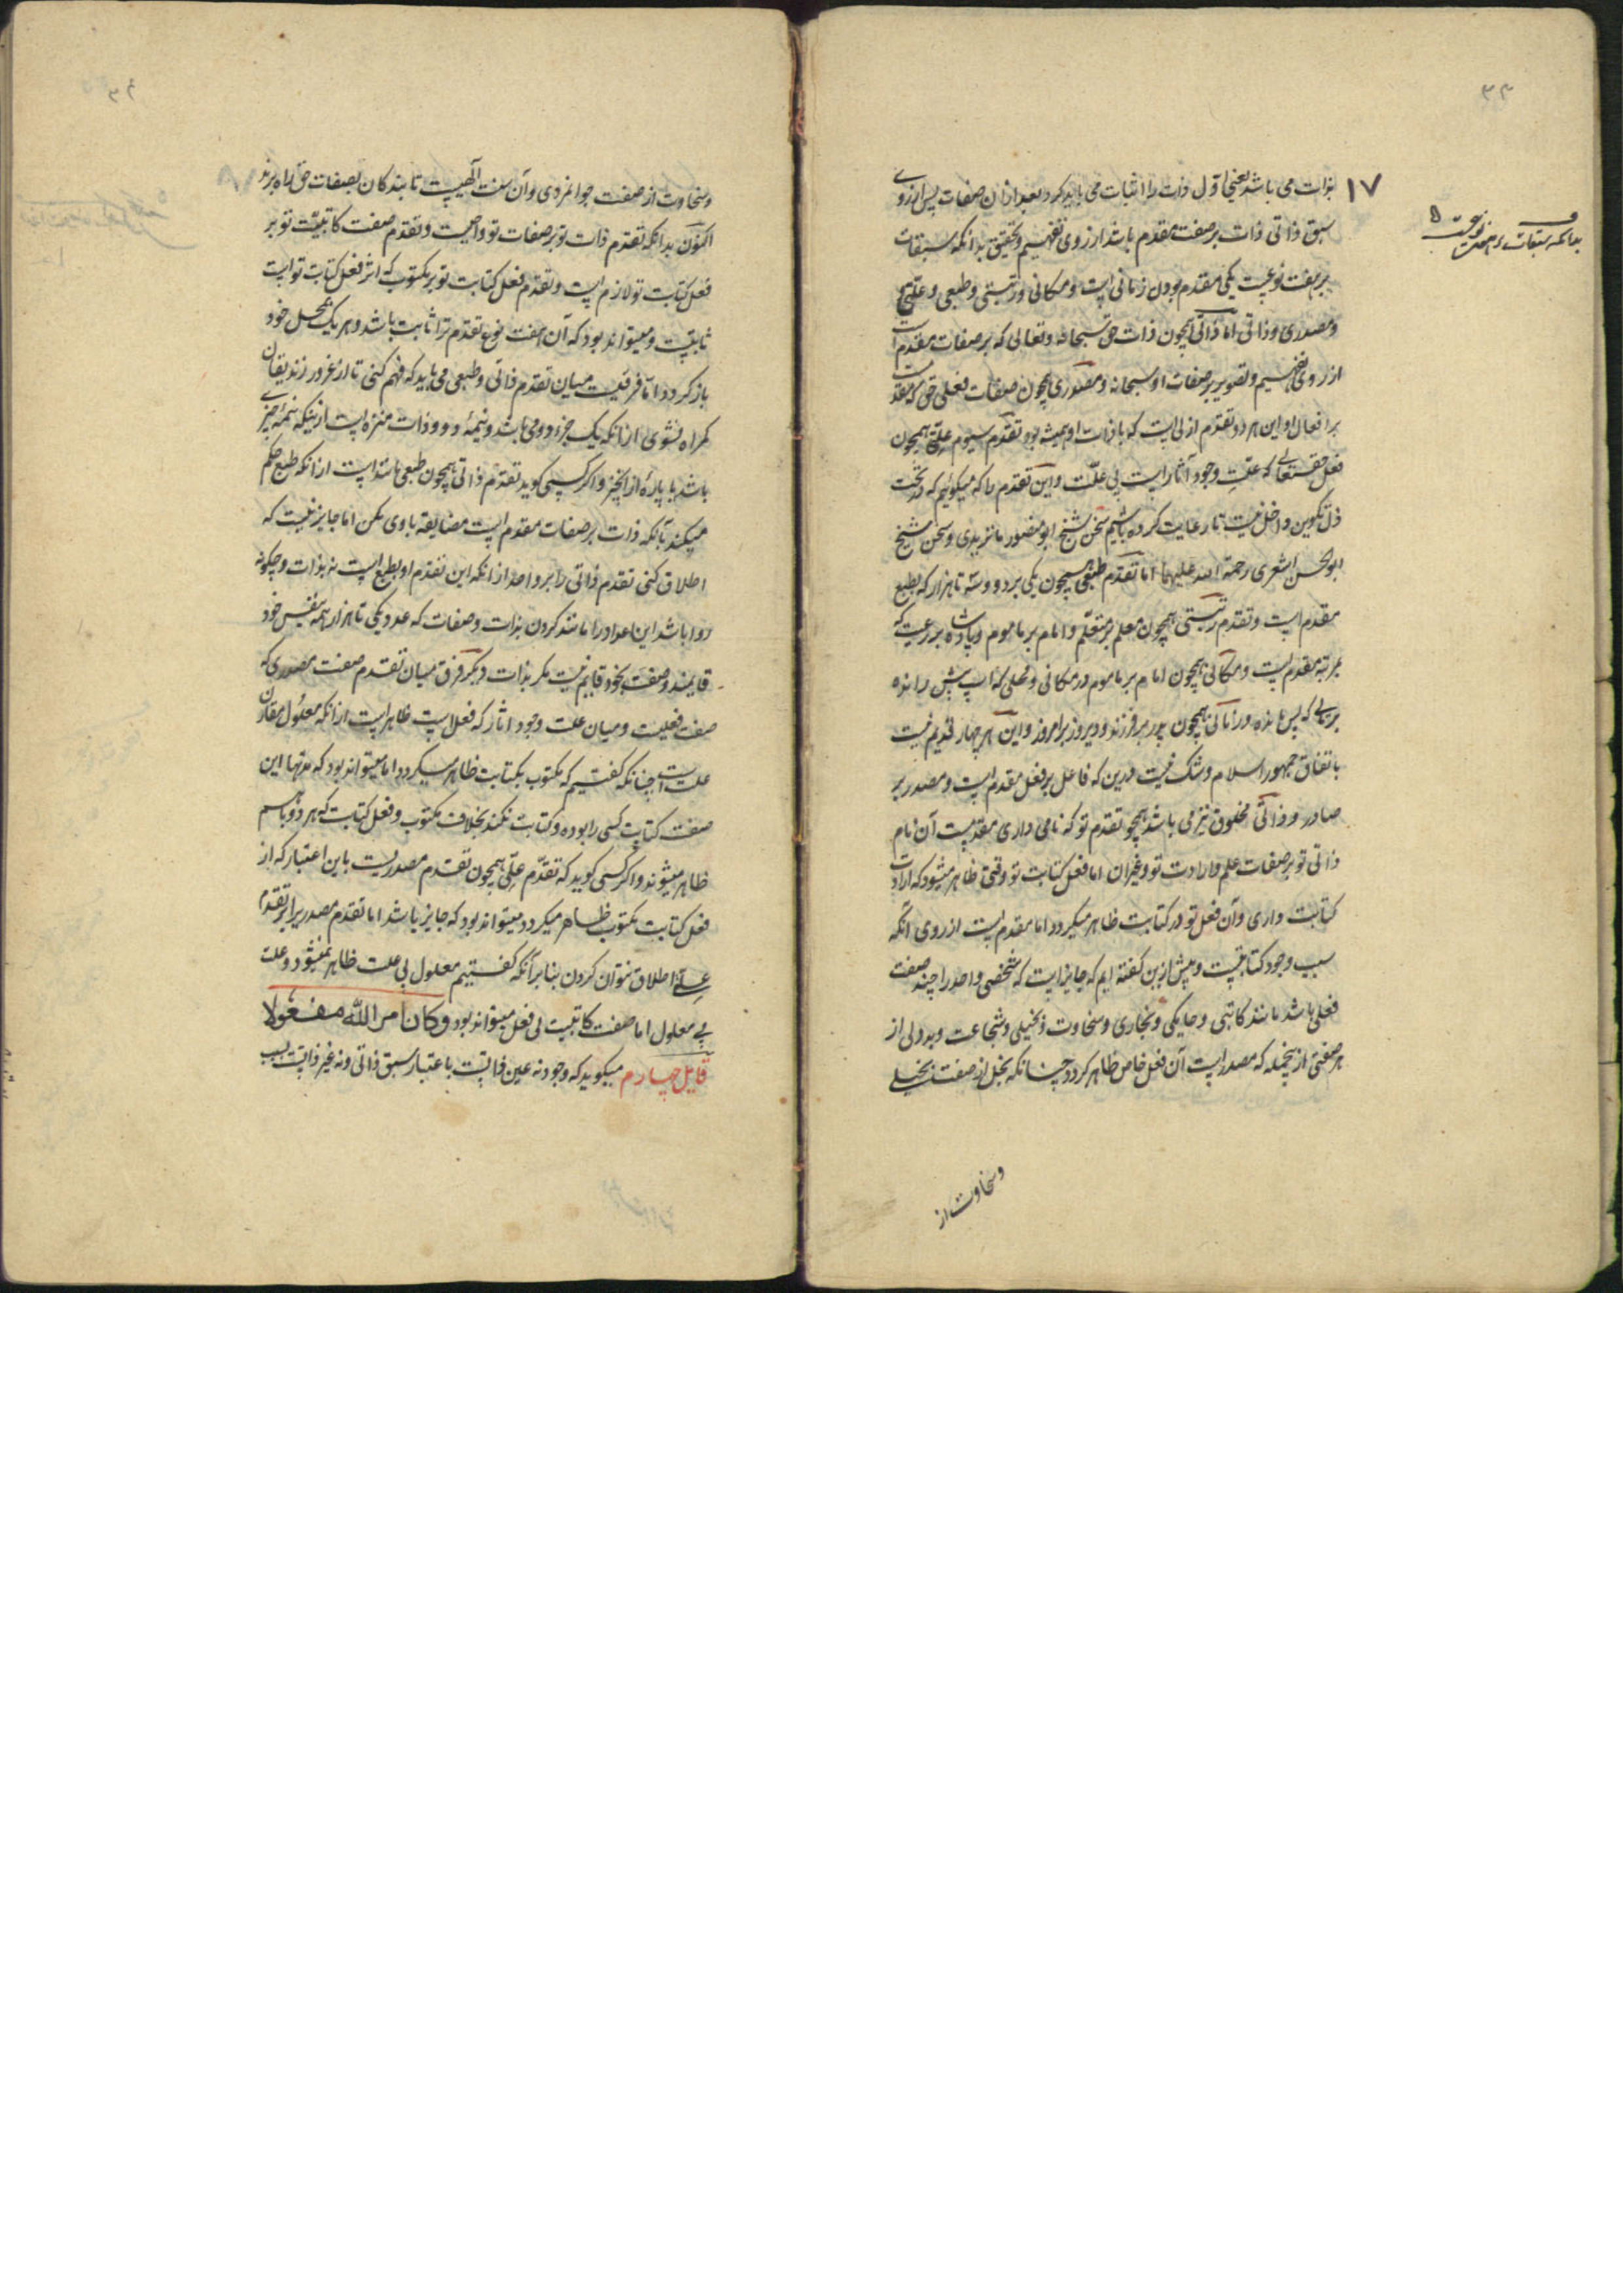 ۳۳
۱۷
بدانکه سبقات بر هفت نوعست
بذات می باشد یعنی اوّل ذات را اثبات می باید کرد بعد ازان صفات پس از روی
سبق ذاتی ذات بر صفت مقدم باشد از روی تفهیم و تحقیق بدانکه سبقات
بر هفت نوعیست یکی مقدم بودن زمانی است و مکانی و رتبتی و طبعی و علّتی
و مصدری و ذاتی اما ذاتی همچون ذات حق سبحانه و تعالی که بر صفات مقدم است
از روی تفهیم و تصویر بر صفات او سبحانه و مصدری همچون صفات فعلی حق که مقدمست
بر افعال او این هر دو تقدّم ازلی است که با ذات او همیشه بود تقدّم سیوم علتی همچون
فعل حقتعالی که علّتِ وجود آثار است بی علّت و این تقدّم را که میگوئیم که در تحت
ذل تکوین داخل نیست تا رعایت کرده باشیم سخن شیخ ابو منصور ماتریدی و سخن شیخ
ابو الحسن اشعری رحمة الله علیهما اما تقدّم طبعی همچون یکی بر دو و سه تا هزار که بطبع
مقدم است و تقدم رتبتی همچون معلم بر متعلّم و امام بر ماموم و پادشاه بر رعیت که
بمرتبه مقدم است و مکانی همچون امام بر ماموم در مکانی و محلی که اسپ پیش رانده
بر محلی که پس مانده و زمانی همچون پدر بر فرزند و دیروز بر امروز و این هر چهار قدیم نیست
باتفاق جمهور اسلام و شک نیست درین که فاعل بر فعل مقدم است و مصدر بر
صادر و ذاتی مخلوق نیز می باشد همچو تقدم تو که نامی داری مقدمست آن نام
ذاتی تو بر صفات علم و ارادت تو و غیر ان اما فعل کتابت تو وقتی ظاهر میشود که ارادت
کتابت داری و آن فعل تو در کتابت ظاهر میگردد اما مقدم است از روی آنکه
سبب وجود کتابتست و پیش ازین گفته ایم که جایز است که شخصی واحد را چند صفت
فعلی باشد مانند کاتبی و حایکی و نجاری و سخاوت و بخیلی و شجاعت و بددلی از
هر صفتی ازینجمله که مصدر است آن فعل خاص ظاهر گردد چنانکه بخل از صفت بخیلی
و سخاوت از
و سخاوت از صفت جوانمردی و آن سنت آلهیست تا بندگان بصفات حق راه برند
اکنون بدانکه تقدّم ذات تو بر صفات تو واضحست و تقدّم صفت کاتبیّت تو بر
فعل کتابت تو لازم است و تقدّم فعل کتابت تو بر مکتوب که اثر فعل کتابت تو است
ثابتست و میتواند بود که آن هفت نوع تقدّم ترا ثابت باشد و هر یک بمحل خود
باز گردد امّا فرقیست میان تقدّم ذاتی و طبعی می باید که فهم کنی تا از غرور زندیقان
گمراه نشوی از انکه یک جزء دو می باشد و نیمۀ دو و ذات منزه است از اینکه نیمۀ چیزی
باشد یا پارۀ از انچیز و اگر کسی گوید تقدّم ذاتی همچون طبعی مانند است از انکه طبع حکم
میکند بآنکه ذات بر صفات مقدم است مضایقه با وی مکن اما جایز نیست که
اطلاق کنی تقدّم ذاتی را بر واحد از انکه این تقدّم او بطبع است نه بذات و چگونه
روا باشد این اعداد را مانند کردن بذات و صفات که عدد یکی تا هزار همه بنفس خود
قایمند و صفت بخود قایم نیست مگر بذات دیگر فرق میان تقدّم صفت مصدری که
صفت فعلیست و میان علت وجود اثار که فعلاست ظاهر است از انکه معلول مقارن
علت است چنانکه گفتیم که مکتوب بکتابت ظاهر میگردد اما میتواند بود که مدتها این
صفت کتابت کسی را بوده و کتابت نکند بخلاف مکتوب و فعل کتابت که هر دو با هم
ظاهر میشوند و اگر کسی گوید که تقدّم علّی همچون تقدم مصدریست باین اعتبار که از
فعل کتابت مکتوب ظاهر میگردد میتواند بود که جایز باشد اما تقدّم مصدر را بر تقدّم
علّی اطلاق نتوان کردن بنا بر آنکه گفتیم معلول بی علت ظاهر نمیشود و علت
بی معلول اما صفت کاتبیت بی فعل میتواند بود و کان امر الله مفعولا
قایل چهارم میگوید که وجود نه عین ذاتست باعتبار سبق ذاتی و نه غیر ذاتست بسبب